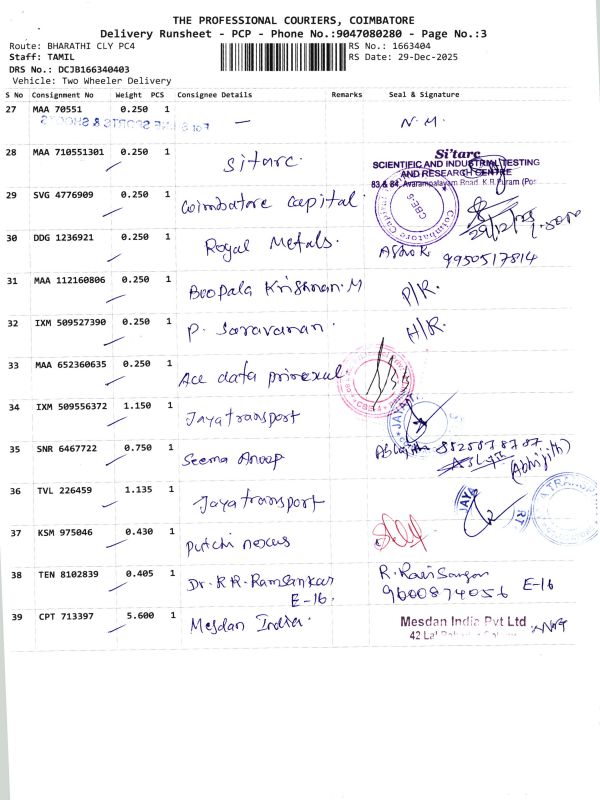 THE PROFESSIONAL COURIERS, COIMBATORE
Delivery Runsheet - PCP - Phone No.:9047080280 - Page No.:3
Route: BHARATHI CLY PC4 RS No.: 1663404
Staff: TAMIL RS Date: 29-Dec-2025
DRS No.: DCJB166340403
Vehicle: Two Wheeler Delivery
S No Consignment No Weight PCS Consignee Details Remarks Seal & Signature
27 MAA 70551 0.250 1 — N.M.
SPORTS & SHOES
28 MAA 710551301 0.250 1 Sitarc.
Si'tarc
SCIENTIFIC AND INDUSTRIAL TESTING
AND RESEARCH CENTRE
83 & 84, Avarampalayam Road, K.R.Puram (Pos
29 SVG 4776909 0.250 1 Coimbatore capital.
Coimbatore Capital
CBE-5
29/12/25
30 DDG 1236921 0.250 1 Royal Metals. Ashok 9950517814
31 MAA 112160806 0.250 1 Boopala Krishnan.M P/R.
32 IXM 509527390 0.250 1 P. Saravanan. H/R.
33 MAA 652360635 0.250 1 Ace data
34 IXM 509556372 1.150 1 Jayatransport
JAYA
35 SNR 6467722 0.750 1 Seema Anoop
(Abhijith)
36 TVL 226459 1.135 1 Jayatransport
JAYA
A TRANSPORT
37 KSM 975046 0.430 1 Putchi nexus
38 TEN 8102839 0.405 1 Dr. R R. Ramsankar R. Ravi Sangar
E-16. 9600874056 E-16
39 CPT 713397 5.600 1 Mesdan India.
Mesdan India Pvt Ltd
42 Lal